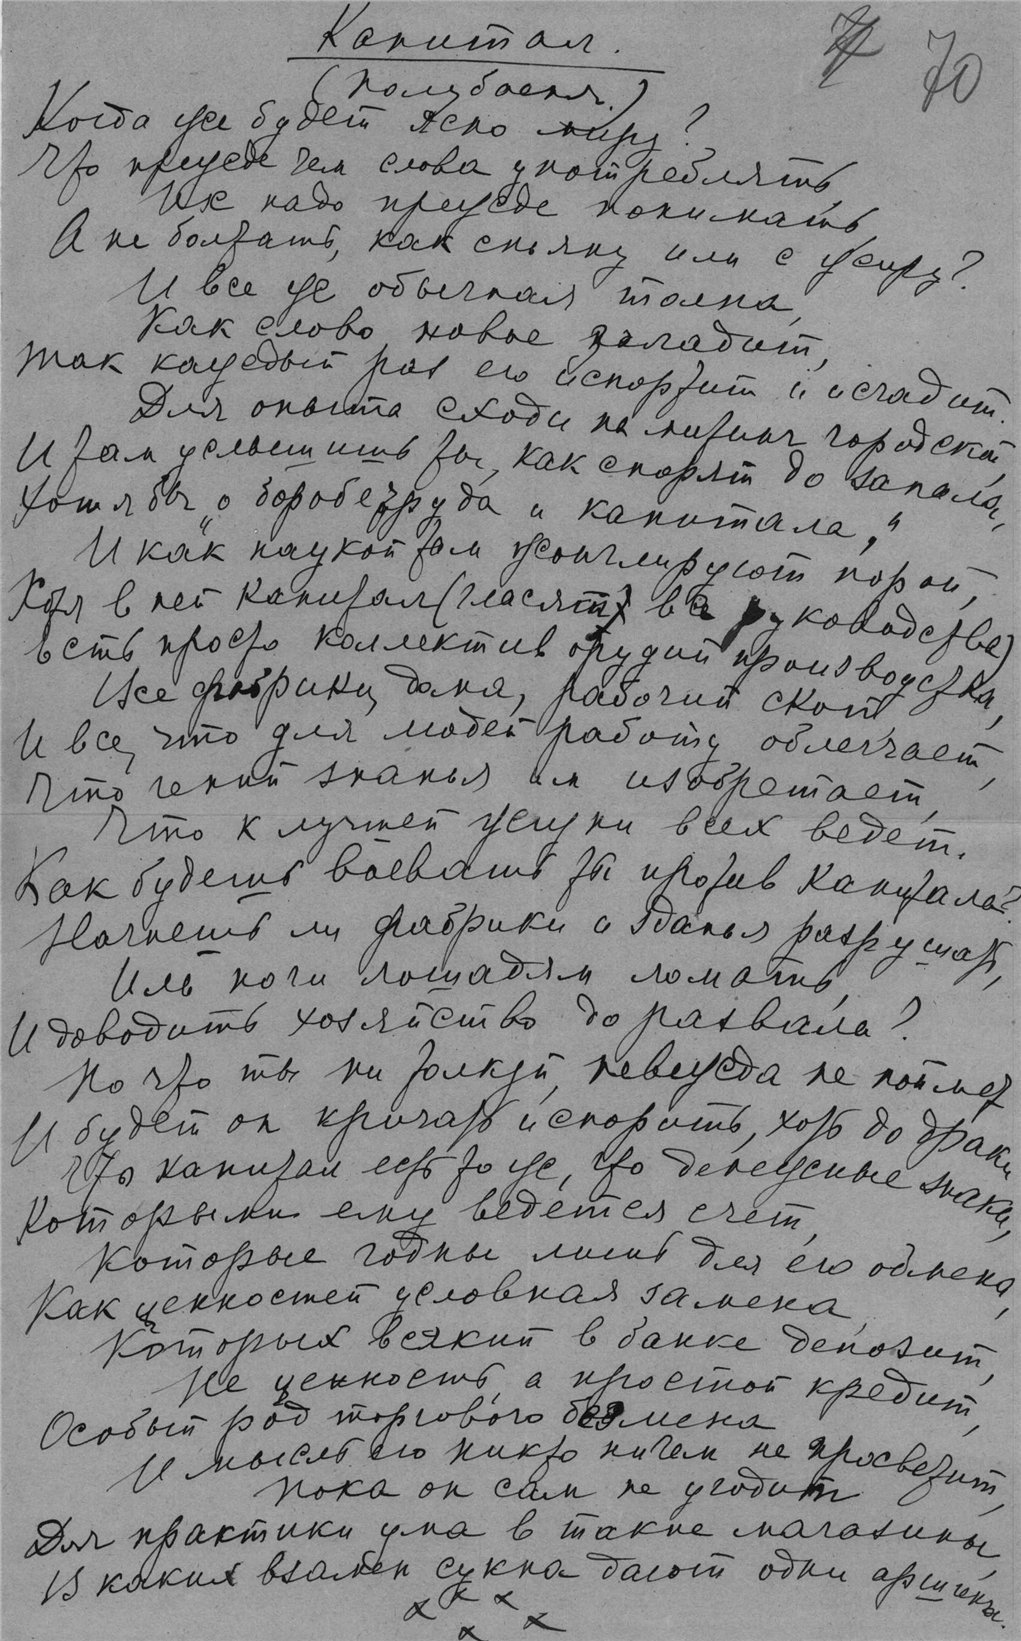 Капитал.
70
(полубасня.)
Когда же будет ясно миру?
Что прежде чем слова употреблять,
Их надо прежде понимать,
А не болтать, как спьяну или с жиру?
И все же обычная толпа,
Как слово новое заладит,
Так каждый раз его испортит и исчадит.
Для опыта сходи на митинг городской,
И там услышишь ты, как спорят до запала,
Хотя бы "о борьбе труда и капитала,"
И как наукой там жонглируют порой,
Хотя в ней капитал (гласят все руководства)
Есть просто коллектив орудий производства,
Все фабрики, дома, рабочий скот
И все, что для людей работу облегчает,
Что гений знанья им изобретает,
Что к лучшей жизни всех ведет.
Как будешь воевать ты против капитала?
Начнешь ли фабрики и зданья разрушать,
Иль ноги лошадям ломать,
И доводить хозяйство до развала?
Но что ты ни толкуй, невежда не поймет
И будет он кричать и спорить, хоть до драки
Что капитал есть то же, что денежные знаки,
Которыми ему ведется счет,
Которые годны лишь для его обмена,
Как ценностей условная замена,
Которых всякий в банке депозит,
Не ценность, а простой кредит,
Особый род торгового безмена
И мысль его никто ничем не просветит,
Пока он сам не угодит
Для практики ума в такие магазины,
В каких взамен сукна дают одни аршины.
х х х х х